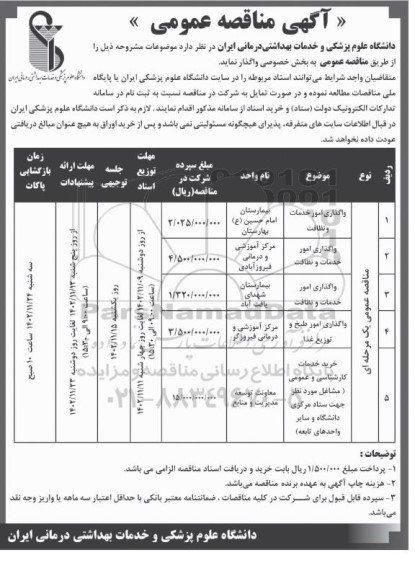 « آگهی مناقصه عمومی »
دانشگاه علوم پزشکی و خدمات بهداشتی درمانی ایران
دانشگاه علوم پزشکی و خدمات بهداشتی‌درمانی ایران در نظر دارد موضوعات مشروحه ذیل را
از طریق مناقصه عمومی به بخش خصوصی واگذار نماید.
متقاضیان واجد شرایط می‌توانند اسناد مربوطه را در سایت دانشگاه علوم پزشکی ایران یا پایگاه
ملی مناقصات مطالعه نموده و در صورت تمایل به شرکت در مناقصه نسبت به ثبت نام در سامانه
تدارکات الکترونیک دولت (ستاد) و خرید اسناد از سامانه مذکور اقدام نمایند. لازم به ذکر است دانشگاه علوم پزشکی ایران
در قبال اطلاعات سایت های متفرقه، پذیرای هیچگونه مسئولیتی نمی باشد و پس از خرید اوراق به هیچ عنوان مبالغ دریافتی
عودت داده نخواهد شد.
ردیف
نوع
موضوع
نام واحد
مبلغ سپرده شرکت در مناقصه(ریال)
مهلت توزیع اسناد
جلسه توجیهی
مهلت ارائه پیشنهادات
زمان بازگشایی پاکات
مناقصه عمومی یک مرحله ای
۱
واگذاری امور خدمات و نظافت
بیمارستان امام حسین (ع) بهارستان
۲/۰۲۵/۰۰۰/۰۰۰
۲
واگذاری امور خدمات و نظافت
مرکز آموزشی و درمانی فیروزآبادی
۴/۵۰۰/۰۰۰/۰۰۰
۳
واگذاری امور خدمات و نظافت
بیمارستان شهدای یافت آباد
۱/۳۲۰/۰۰۰/۰۰۰
۴
واگذاری امور طبخ و توزیع غذا
مرکز آموزشی و درمانی فیروزگر
۳/۵۰۰/۰۰۰/۰۰۰
۵
خرید خدمات کارشناسی و عمومی ( مشاغل مورد نظر) جهت ستاد مرکزی دانشگاه و سایر واحدهای تابعه)
معاونت توسعه مدیریت و منابع
۱۵/۰۰۰/۰۰۰/۰۰۰
از روز دوشنبه ۱۴۰۲/۱۱/۰۹ لغایت روز چهارشنبه ۱۴۰۲/۱۱/۱۱
روز یکشنبه ۱۴۰۲/۱۱/۱۵
از روز پنج شنبه ۱۴۰۲/۱۱/۱۲ لغایت روز دوشنبه ۱۴۰۲/۱۱/۲۳
سه شنبه ۱۴۰۲/۱۱/۲۴ ساعت ۱۰ صبح
توضیحات :
۱- پرداخت مبلغ ۱/۵۰۰/۰۰۰ ریال بابت خرید و دریافت اسناد مناقصه الزامی می باشد.
۲- هزینه چاپ آگهی به عهده برنده مناقصه می‌باشد.
۳- سپرده قابل قبول برای شرکت در کلیه مناقصات ، ضمانتنامه معتبر بانکی با حداقل اعتبار سه ماهه یا واریز وجه نقد
می‌باشد.
دانشگاه علوم پزشکی و خدمات بهداشتی درمانی ایران